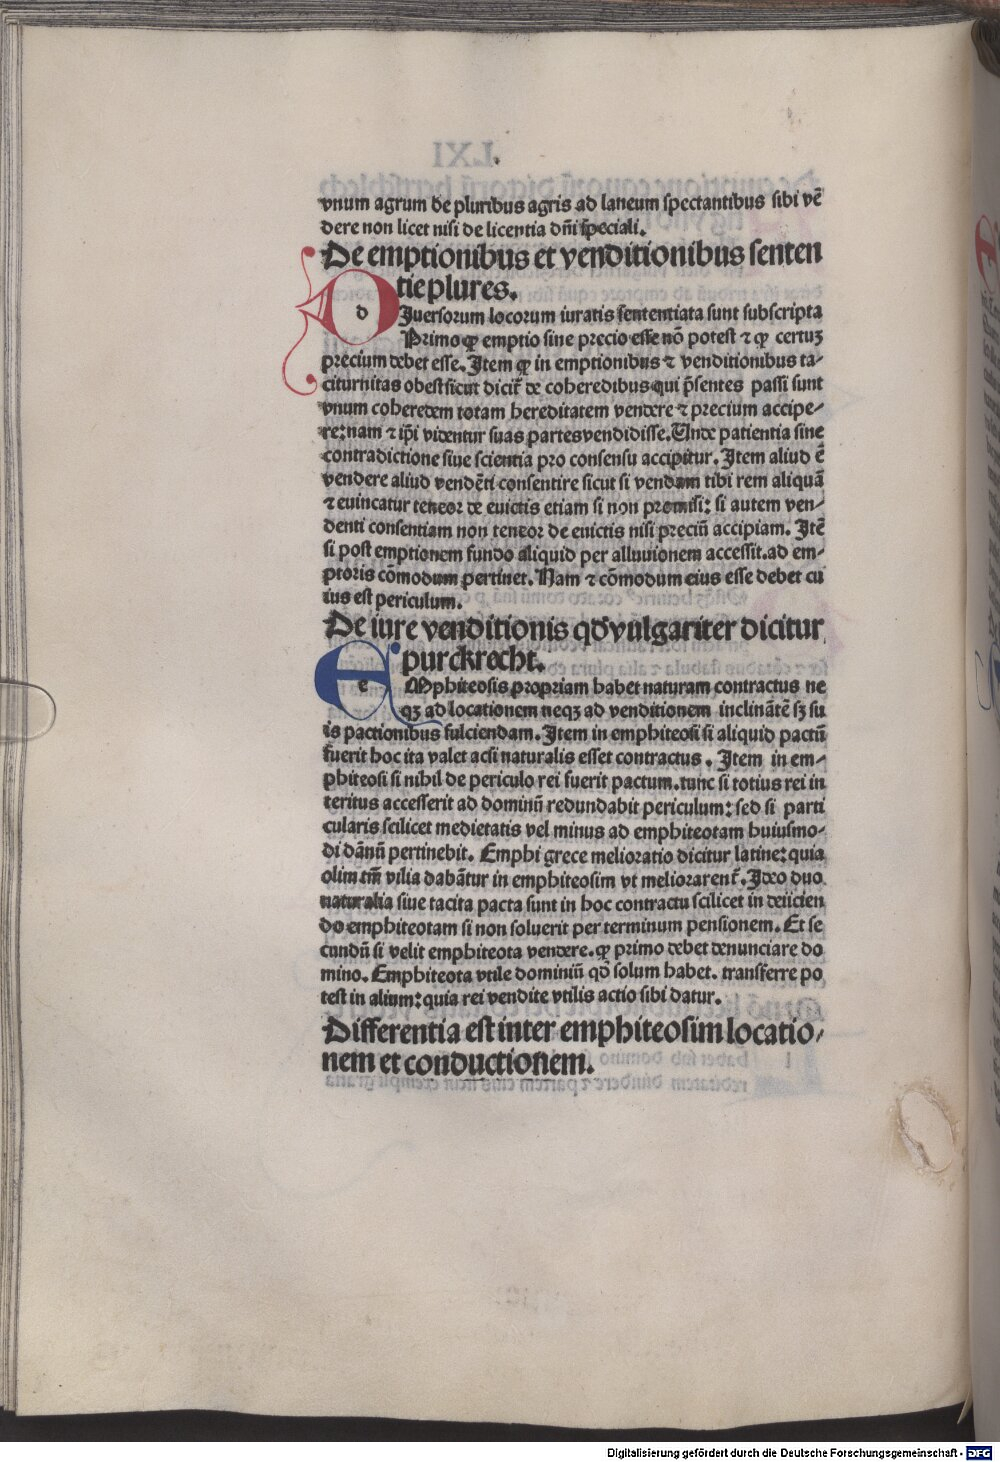 vnum agrum de pluribus agris ad laneum spectantibus sibi vē
dere non licet nisi de licentia dn̄i sp̄eciali.
De emptionibus et venditionibus senten
tie plures.
D Iuersorum locorum iuratis sententiata sunt subscripta
Primo ꝙ emptio sine precio esse nō potest ⁊ ꝙ certuꝫ
precium debet esse. Item ꝙ in emptionibus ⁊ venditionibus ta-
citurnitas obest sicut dicit̄ de coheredibus qui p̄sentes passi sunt
vnum coheredem totam hereditatem vendere ⁊ precium accipe-
re: nam ⁊ ip̄i videntur suas partes vendidisse. Unde patientia sine
contradictione siue scientia pro consensu accipitur. Item aliud ē
vendere aliud vendēti consentire sicut si vendam tibi rem aliquā
⁊ euincatur teneor de euictis etiam si non promisi: si autem ven-
denti consentiam non teneor de euictis nisi preciū accipiam. Itē
si post emptionem fundo aliquid per alluuionem accessit. ad em-
ptoris cōmodum pertinet. Nam ⁊ cōmodum eius esse debet cu
ius est periculum.
De iure venditionis qd̄ vulgariter dicitur
purckrecht.
e Mphiteosis propriam habet naturam contractus ne
qꝫ ad locationem neqꝫ ad venditionem inclinātē sꝫ su
is pactionibus fulciendam. Item in emphiteosi si aliquid pactū
fuerit hoc ita valet acsi naturalis esset contractus. Item in em-
phiteosi si nihil de periculo rei fuerit pactum. tunc si totius rei in
teritus accesserit ad dominū redundabit periculum: sed si parti
cularis scilicet medietatis vel minus ad emphiteotam huiusmo-
di dānū pertinebit. Emphi grece melioratio dicitur latine: quia
olim tm̄ vilia dabātur in emphiteosim vt meliorarent̄. Ideo duo
naturalia siue tacita pacta sunt in hoc contractu scilicet in deiicien
do emphiteotam si non soluerit per terminum pensionem. Et se
cundū si velit emphiteota vendere. ꝙ primo debet denunciare do
mino. Emphiteota vtile dominiū qd̄ solum habet. transferre po
test in alium: quia rei vendite vtilis actio sibi datur.
Differentia est inter emphiteosim locatio-
nem et conductionem.
Digitalisierung gefördert durch die Deutsche Forschungsgemeinschaft - DFG